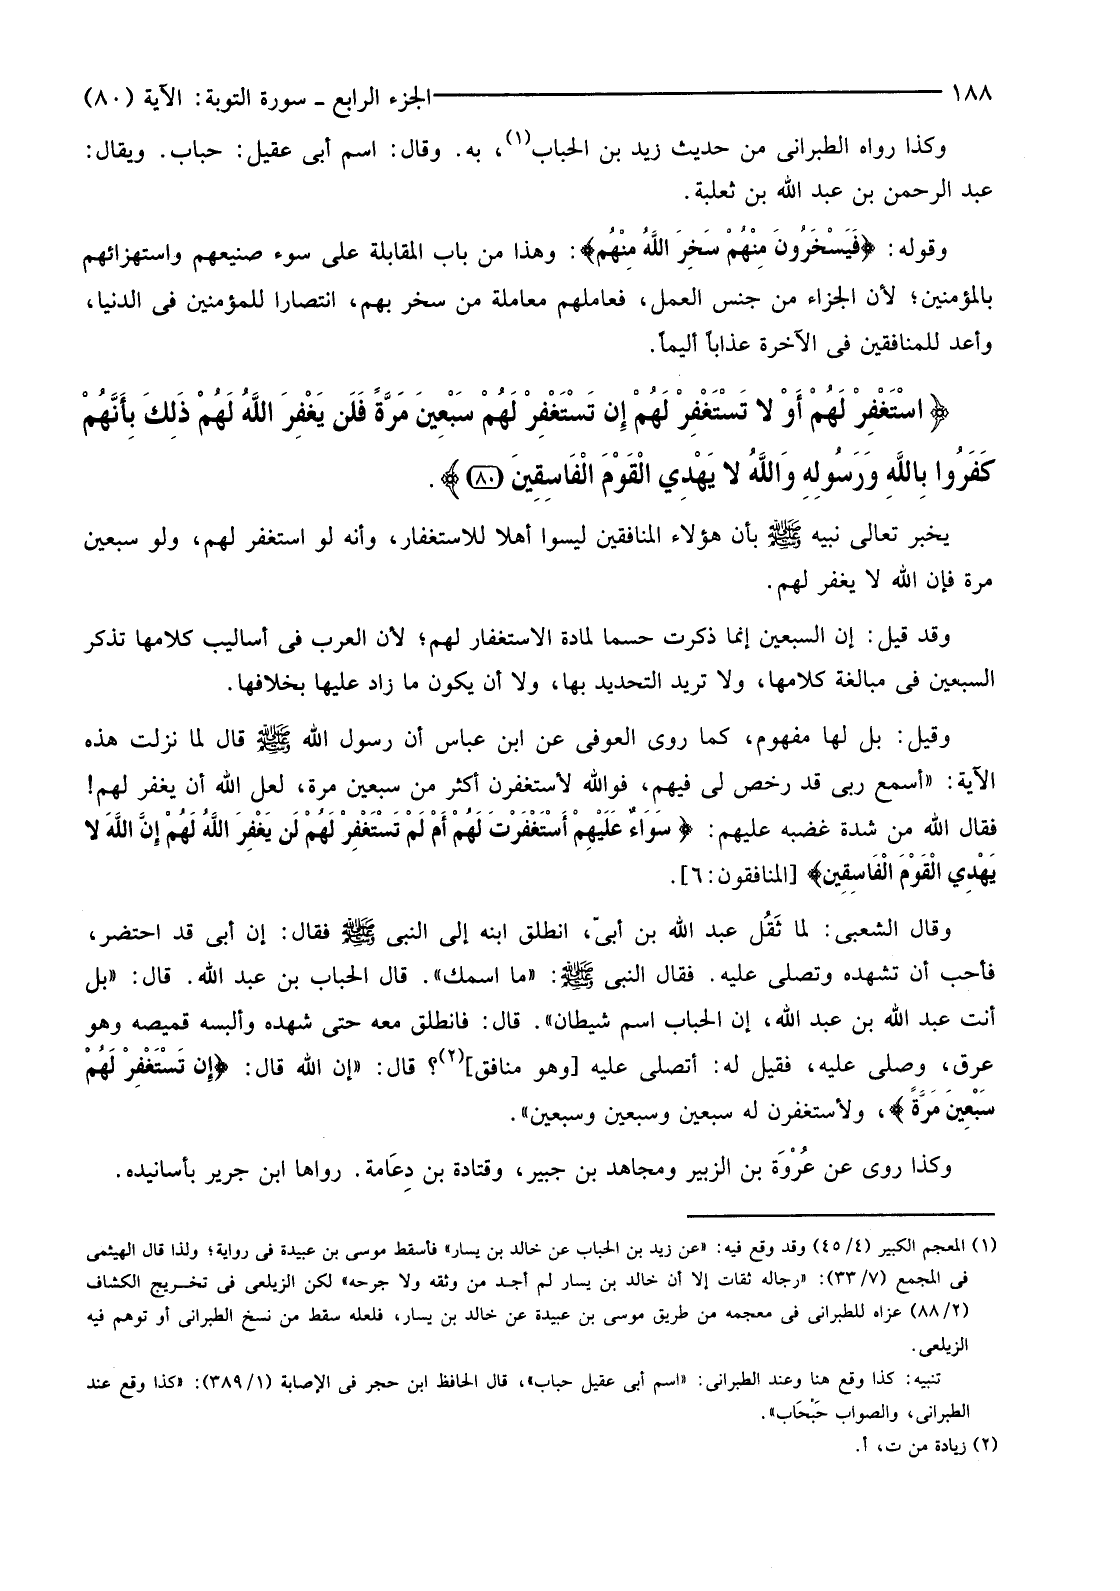 ١٨٨ ــــــــــــــــــ الجزء الرابع ـ سورة التوبة: الآية (٨٠)
وكذا رواه الطبرانى من حديث زيد بن الحباب(١)، به. وقال: اسم أبى عقيل: حباب. ويقال:
عبد الرحمن بن عبد الله بن ثعلبة.
وقوله: ﴿فَيَسْخَرُونَ مِنْهُمْ سَخِرَ اللَّهُ مِنْهُم﴾: وهذا من باب المقابلة على سوء صنيعهم واستهزائهم
بالمؤمنين؛ لأن الجزاء من جنس العمل، فعاملهم معاملة من سخر بهم، انتصارا للمؤمنين فى الدنيا،
وأعد للمنافقين فى الآخرة عذاباً أليماً.
﴿ اسْتَغْفِرْ لَهُمْ أَوْ لا تَسْتَغْفِرْ لَهُمْ إِن تَسْتَغْفِرْ لَهُمْ سَبْعِينَ مَرَّةً فَلَن يَغْفِرَ اللَّهُ لَهُمْ ذَلِكَ بِأَنَّهُمْ
كَفَرُوا بِاللَّهِ وَرَسُولِهِ وَاللَّهُ لا يَهْدِي الْقَوْمَ الْفَاسِقِينَ (٨٠)﴾ .
يخبر تعالى نبيه ﷺ بأن هؤلاء المنافقين ليسوا أهلا للاستغفار، وأنه لو استغفر لهم، ولو سبعين
مرة فإن الله لا يغفر لهم.
وقد قيل: إن السبعين إنما ذكرت حسما لمادة الاستغفار لهم؛ لأن العرب فى أساليب كلامها تذكر
السبعين فى مبالغة كلامها، ولا تريد التحديد بها، ولا أن يكون ما زاد عليها بخلافها.
وقيل: بل لها مفهوم، كما روى العوفى عن ابن عباس أن رسول الله ﷺ قال لما نزلت هذه
الآية: «أسمع ربى قد رخص لى فيهم، فوالله لأستغفرن أكثر من سبعين مرة، لعل الله أن يغفر لهم!
فقال الله من شدة غضبه عليهم: ﴿ سَوَاءٌ عَلَيْهِمْ أَسْتَغْفَرْتَ لَهُمْ أَمْ لَمْ تَسْتَغْفِرْ لَهُمْ لَن يَغْفِرَ اللَّهُ لَهُمْ إِنَّ اللَّهَ لا
يَهْدِي الْقَوْمَ الْفَاسِقِين﴾ [المنافقون:٦].
وقال الشعبى: لما ثَقُل عبد الله بن أبىّ، انطلق ابنه إلى النبى ﷺ فقال: إن أبى قد احتضر،
فأحب أن تشهده وتصلى عليه. فقال النبى ﷺ: «ما اسمك». قال الحباب بن عبد الله. قال: «بل
أنت عبد الله بن عبد الله، إن الحباب اسم شيطان». قال: فانطلق معه حتى شهده وألبسه قميصه وهو
عرق، وصلى عليه، فقيل له: أتصلى عليه [وهو منافق](٢)؟ قال: «إن الله قال: ﴿إِن تَسْتَغْفِرْ لَهُمْ
سَبْعِينَ مَرَّةً ﴾، ولأستغفرن له سبعين وسبعين وسبعين».
وكذا روى عن عُرْوَة بن الزبير ومجاهد بن جبير، وقتادة بن دِعَامة. رواها ابن جرير بأسانيده.
(١) المعجم الكبير (٤/ ٤٥) وقد وقع فيه: «عن زيد بن الحباب عن خالد بن يسار» فأسقط موسى بن عبيدة فى رواية؛ ولذا قال الهيثمى
فى المجمع (٧/ ٣٣): «رجاله ثقات إلا أن خالد بن يسار لم أجد من وثقه ولا جرحه» لكن الزيلعى فى تخريج الكشاف
(٢/ ٨٨) عزاه للطبرانى فى معجمه من طريق موسى بن عبيدة عن خالد بن يسار، فلعله سقط من نسخ الطبرانى أو توهم فيه
الزيلعى.
تنبيه: كذا وقع هنا وعند الطبرانى: «اسم أبى عقيل حباب»، قال الحافظ ابن حجر فى الإصابة (١/ ٣٨٩): «كذا وقع عند
الطبرانى، والصواب حَبْحَاب».
(٢) زيادة من ت، أ.